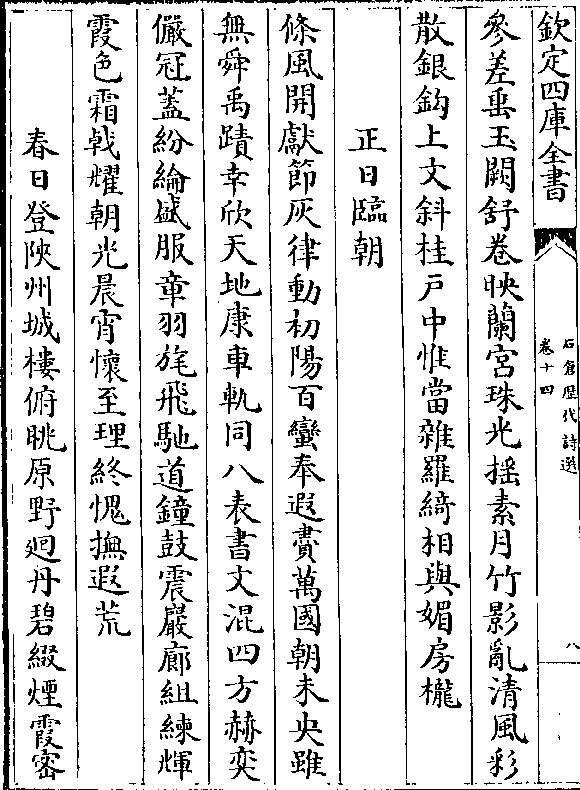 欽定四庫全書
石倉歴代詩選
卷十四
八
參差垂玉闕舒卷映蘭宮珠光揺素月竹影亂清風彩
散銀鈎上文斜桂戸中惟當雜羅綺相與媚房櫳
正日臨朝
條風開獻節灰律動初陽百蠻奉遐賮萬國朝未央雖
無舜禹蹟幸欣天地康車軌同八表書文混四方赫奕
儼冠蓋紛綸盛服章羽旄飛馳道鐘鼓震巖廊組練輝
霞色霜戟耀朝光晨宵懷至理終愧撫遐荒
春日登陜州城樓俯眺原野廻丹碧綴煙霞密